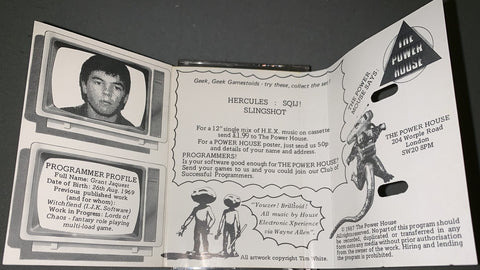 PROGRAMMER PROFILE
Full Name: Grant Jaquest
Date of Birth: 26th Aug. 1969
Previous published work
(and for whom):
Witchfiend (I.J.K. Software)
Work in Progress: Lords of
Chaos - fantasy role playing
multi-load game.
Geek, Geek Gamestoids - try these, collect the set!
HERCULES : SQIJ!
SLINGSHOT
For a 12" single mix of H.E.X. music on cassette
send £1.99 to The Power House.
For a POWER HOUSE poster, just send us 50p
and details of your name and address.
PROGRAMMERS!
Is your software good enough for THE POWER HOUSE?
Send your games to us and you could join our Club of
Successful Programmers.
"Yowzer! Brilloid!
All music by House
Electronic Xperience
via Wayne Allen"
All artwork copyright Tim White.
THE
POWER
HOUSE
THE POWER
MOUSE SAYS:
THE POWER HOUSE
204 Worple Road
London
SW20 8PM
© 1987 The Power House
All rights reserved. No part of this program should
be recorded, duplicated or transferred in any
form onto any media without prior authorisation
from the owner of the work. Hiring and lending
the program is prohibited.